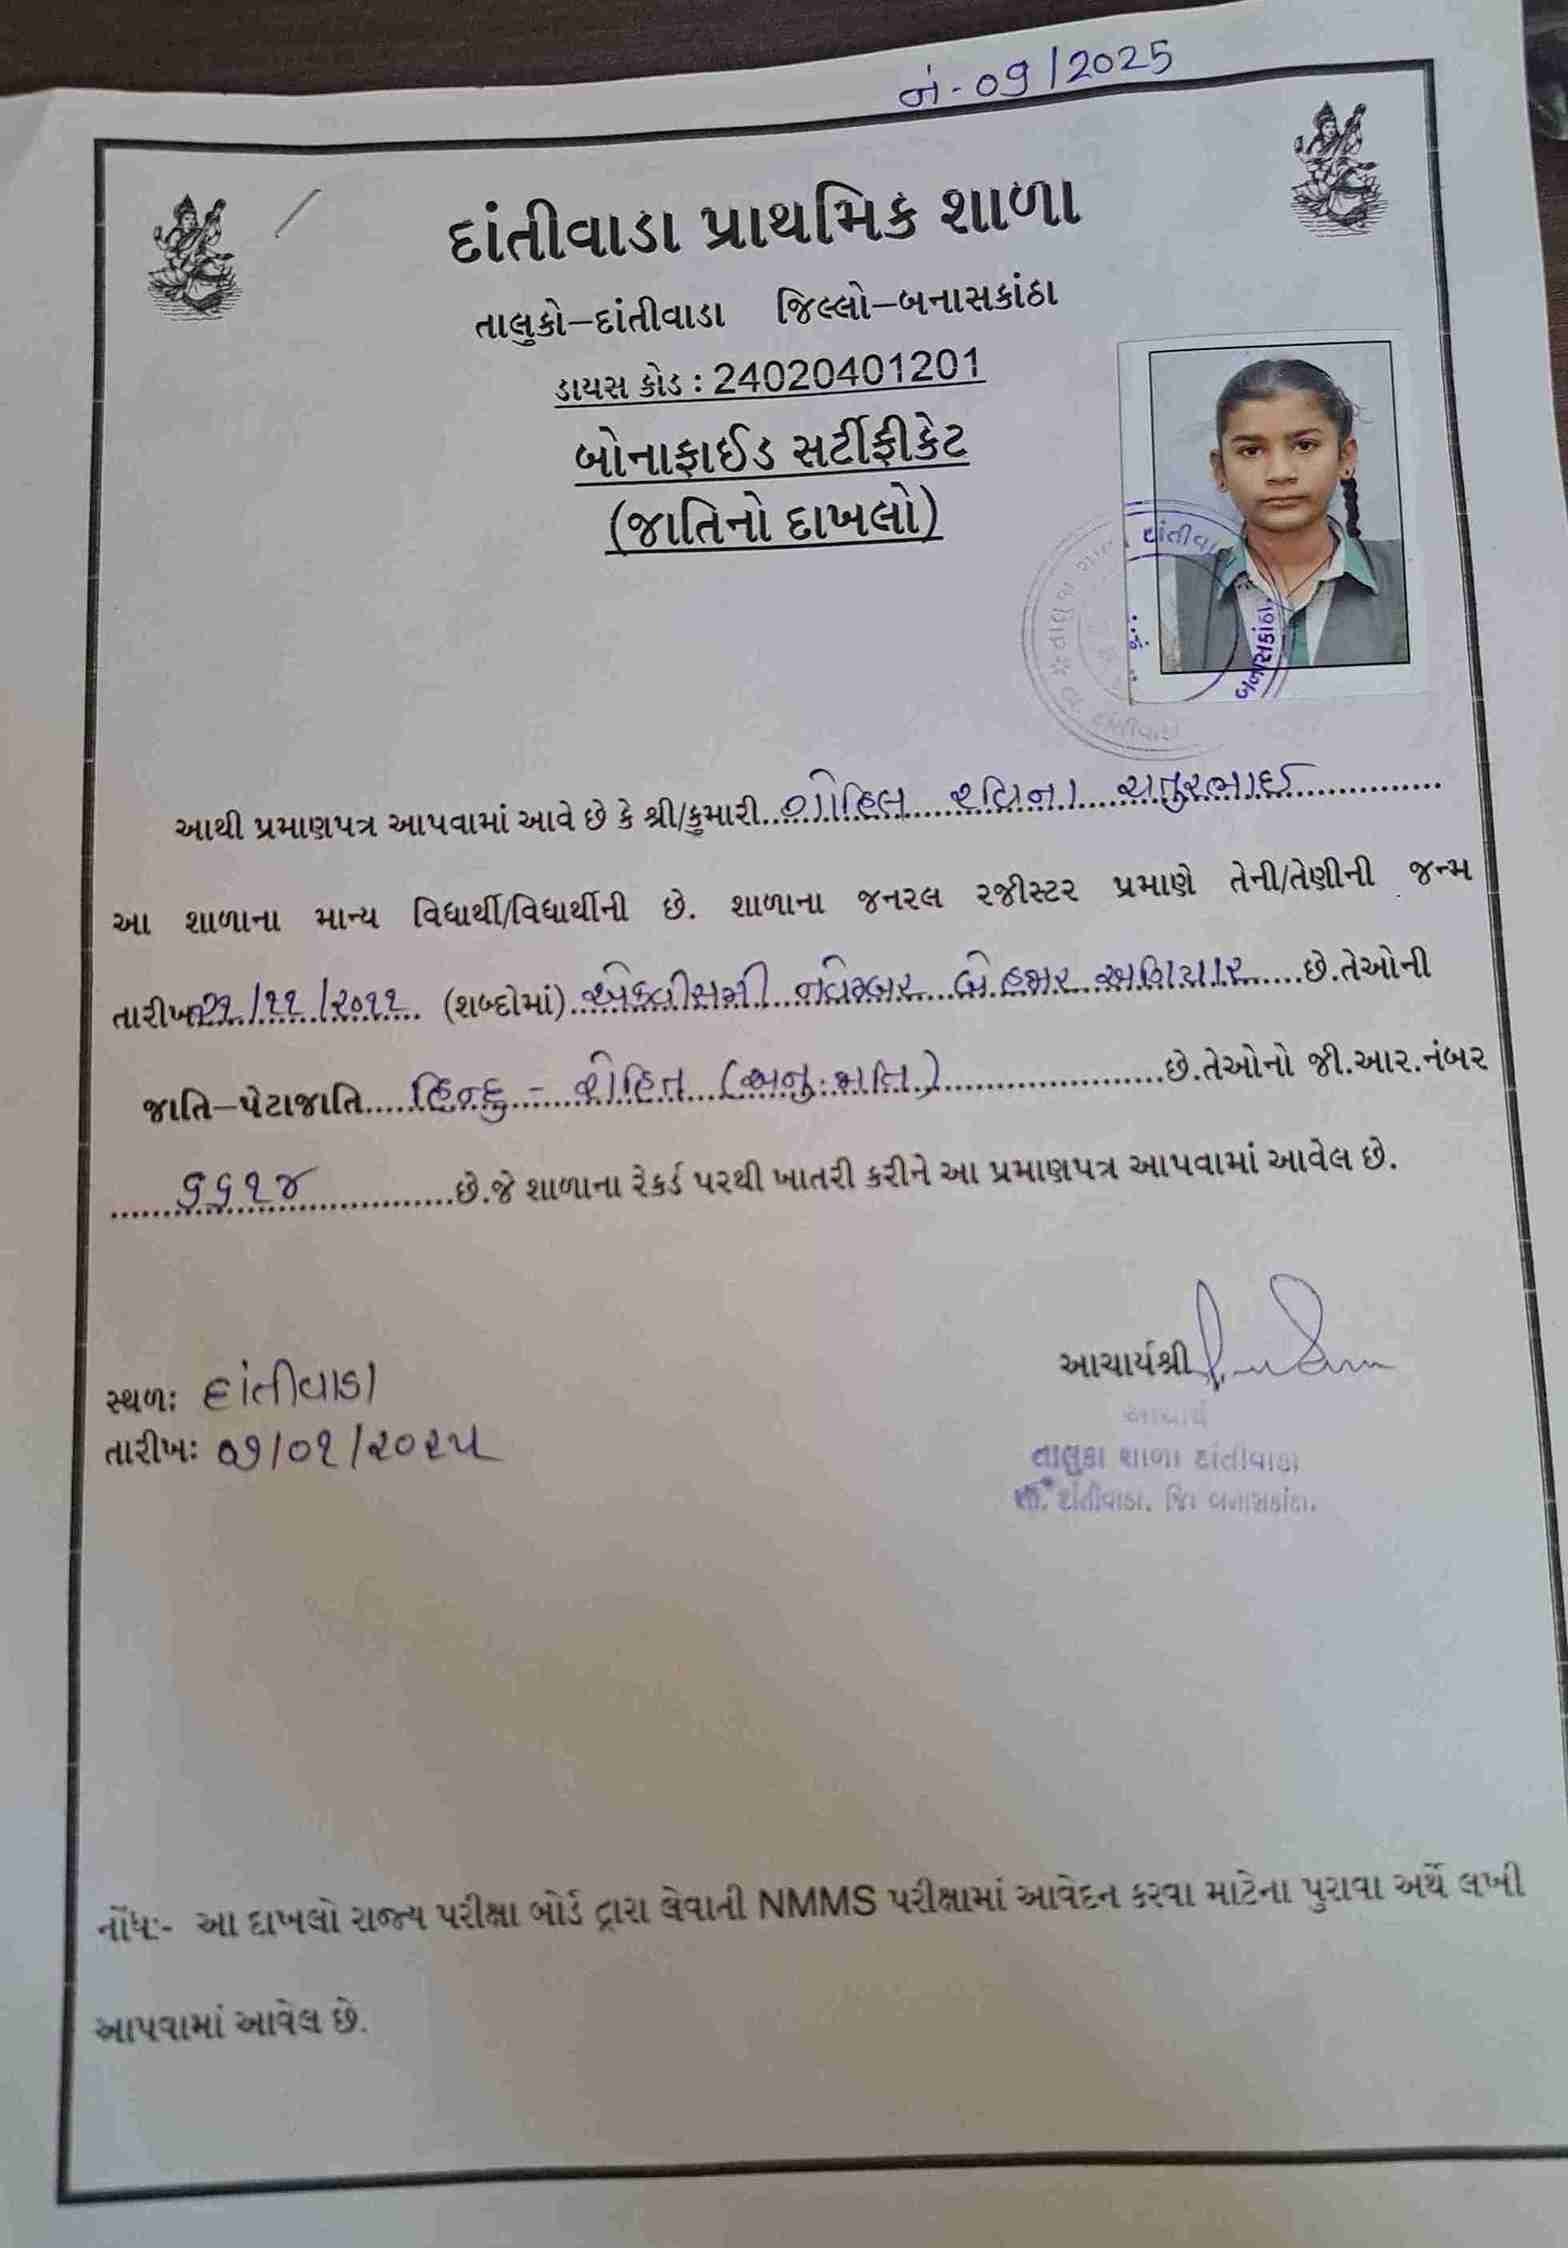 નં.-09/2025
દાંતીવાડા પ્રાથમિક શાળા
તાલુકો–દાંતીવાડા જિલ્લો–બનાસકાંઠા
ડાયસ કોડ : 24020401201
બોનાફાઈડ સર્ટીફીકેટ
(જાતિનો દાખલો)
દાંતીવાડા
બનાસકાંઠા.
આથી પ્રમાણપત્ર આપવામાં આવે છે કે શ્રી/કુમારી..ગોહિલ રવિના ચતુરભાઈ
આ શાળાના માન્ય વિધાર્થી/વિધાર્થીની છે. શાળાના જનરલ રજીસ્ટર પ્રમાણે તેની/તેણીની જન્મ
તારીખ ૨૧/૧૧/૨૦૧૧ (શબ્દોમાં) એકવીસમી નવેમ્બર બે હજાર અગિયાર છે.તેઓની
જાતિ–પેટાજાતિ હિન્દુ - રોહિત (અનુ.જાતિ) છે.તેઓનો જી.આર.નંબર
૬૬૧૪ છે.જે શાળાના રેકર્ડ પરથી ખાતરી કરીને આ પ્રમાણપત્ર આપવામાં આવેલ છે.
આચાર્યશ્રી
સ્થળ: દાંતીવાડા
તારીખ: ૦૭/૦૧/૨૦૨૫
આચાર્ય
તાલુકા શાળા દાંતીવાડા
તા. દાંતીવાડા. જિ બનાસકાંઠા.
નોંધ:- આ દાખલો રાજ્ય પરીક્ષા બોર્ડ દ્વારા લેવાતી NMMS પરીક્ષામાં આવેદન કરવા માટેના પુરાવા અર્થે લખી
આપવામાં આવેલ છે.